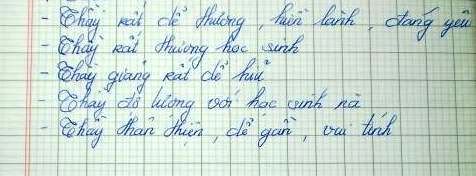 - Thầy rất dễ thương, hiền lành, đáng yêu
- Thầy rất thương học sinh
- Thầy giảng rất dễ hiểu
- Thầy độ lượng với học sinh nà
- Thầy thân thiện, dễ gần, vui tính